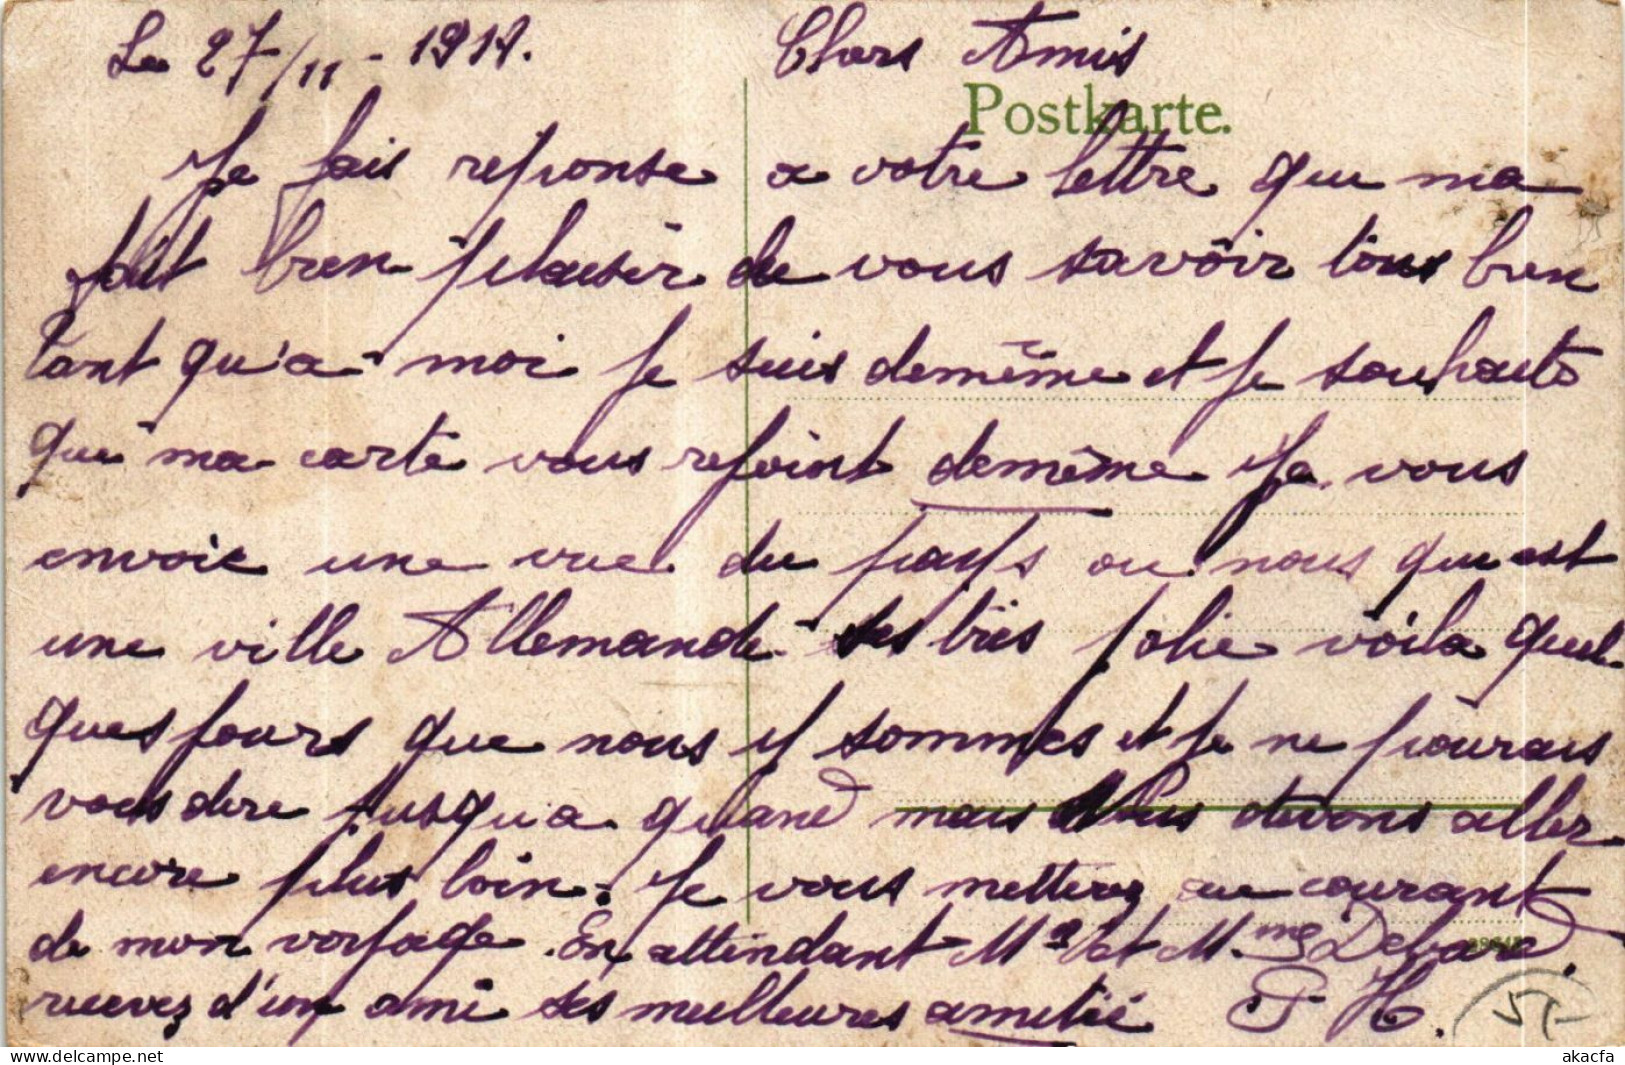 Le 27/11 - 1918.
Chers Amis
Postkarte.
Je fais reponse a votre lettre que ma
fait bien plaisir de vous savoir tous bien
tant qu'a moi je suis demême et je souhaite
que ma carte vous rejoint demême Je vous
envoie une vue du pays ou nous que est
une ville Allemande ses très jolie voila quel
ques jours que nous y sommes et je ne pourais
vous dire jusqu a quand mais Nous devons aller
encore plus loin. Je vous metterez au courant
de mon voyage. En attendant Mr et Mme
recevez d'un ami ses meilleures amitié P H.
akacfa